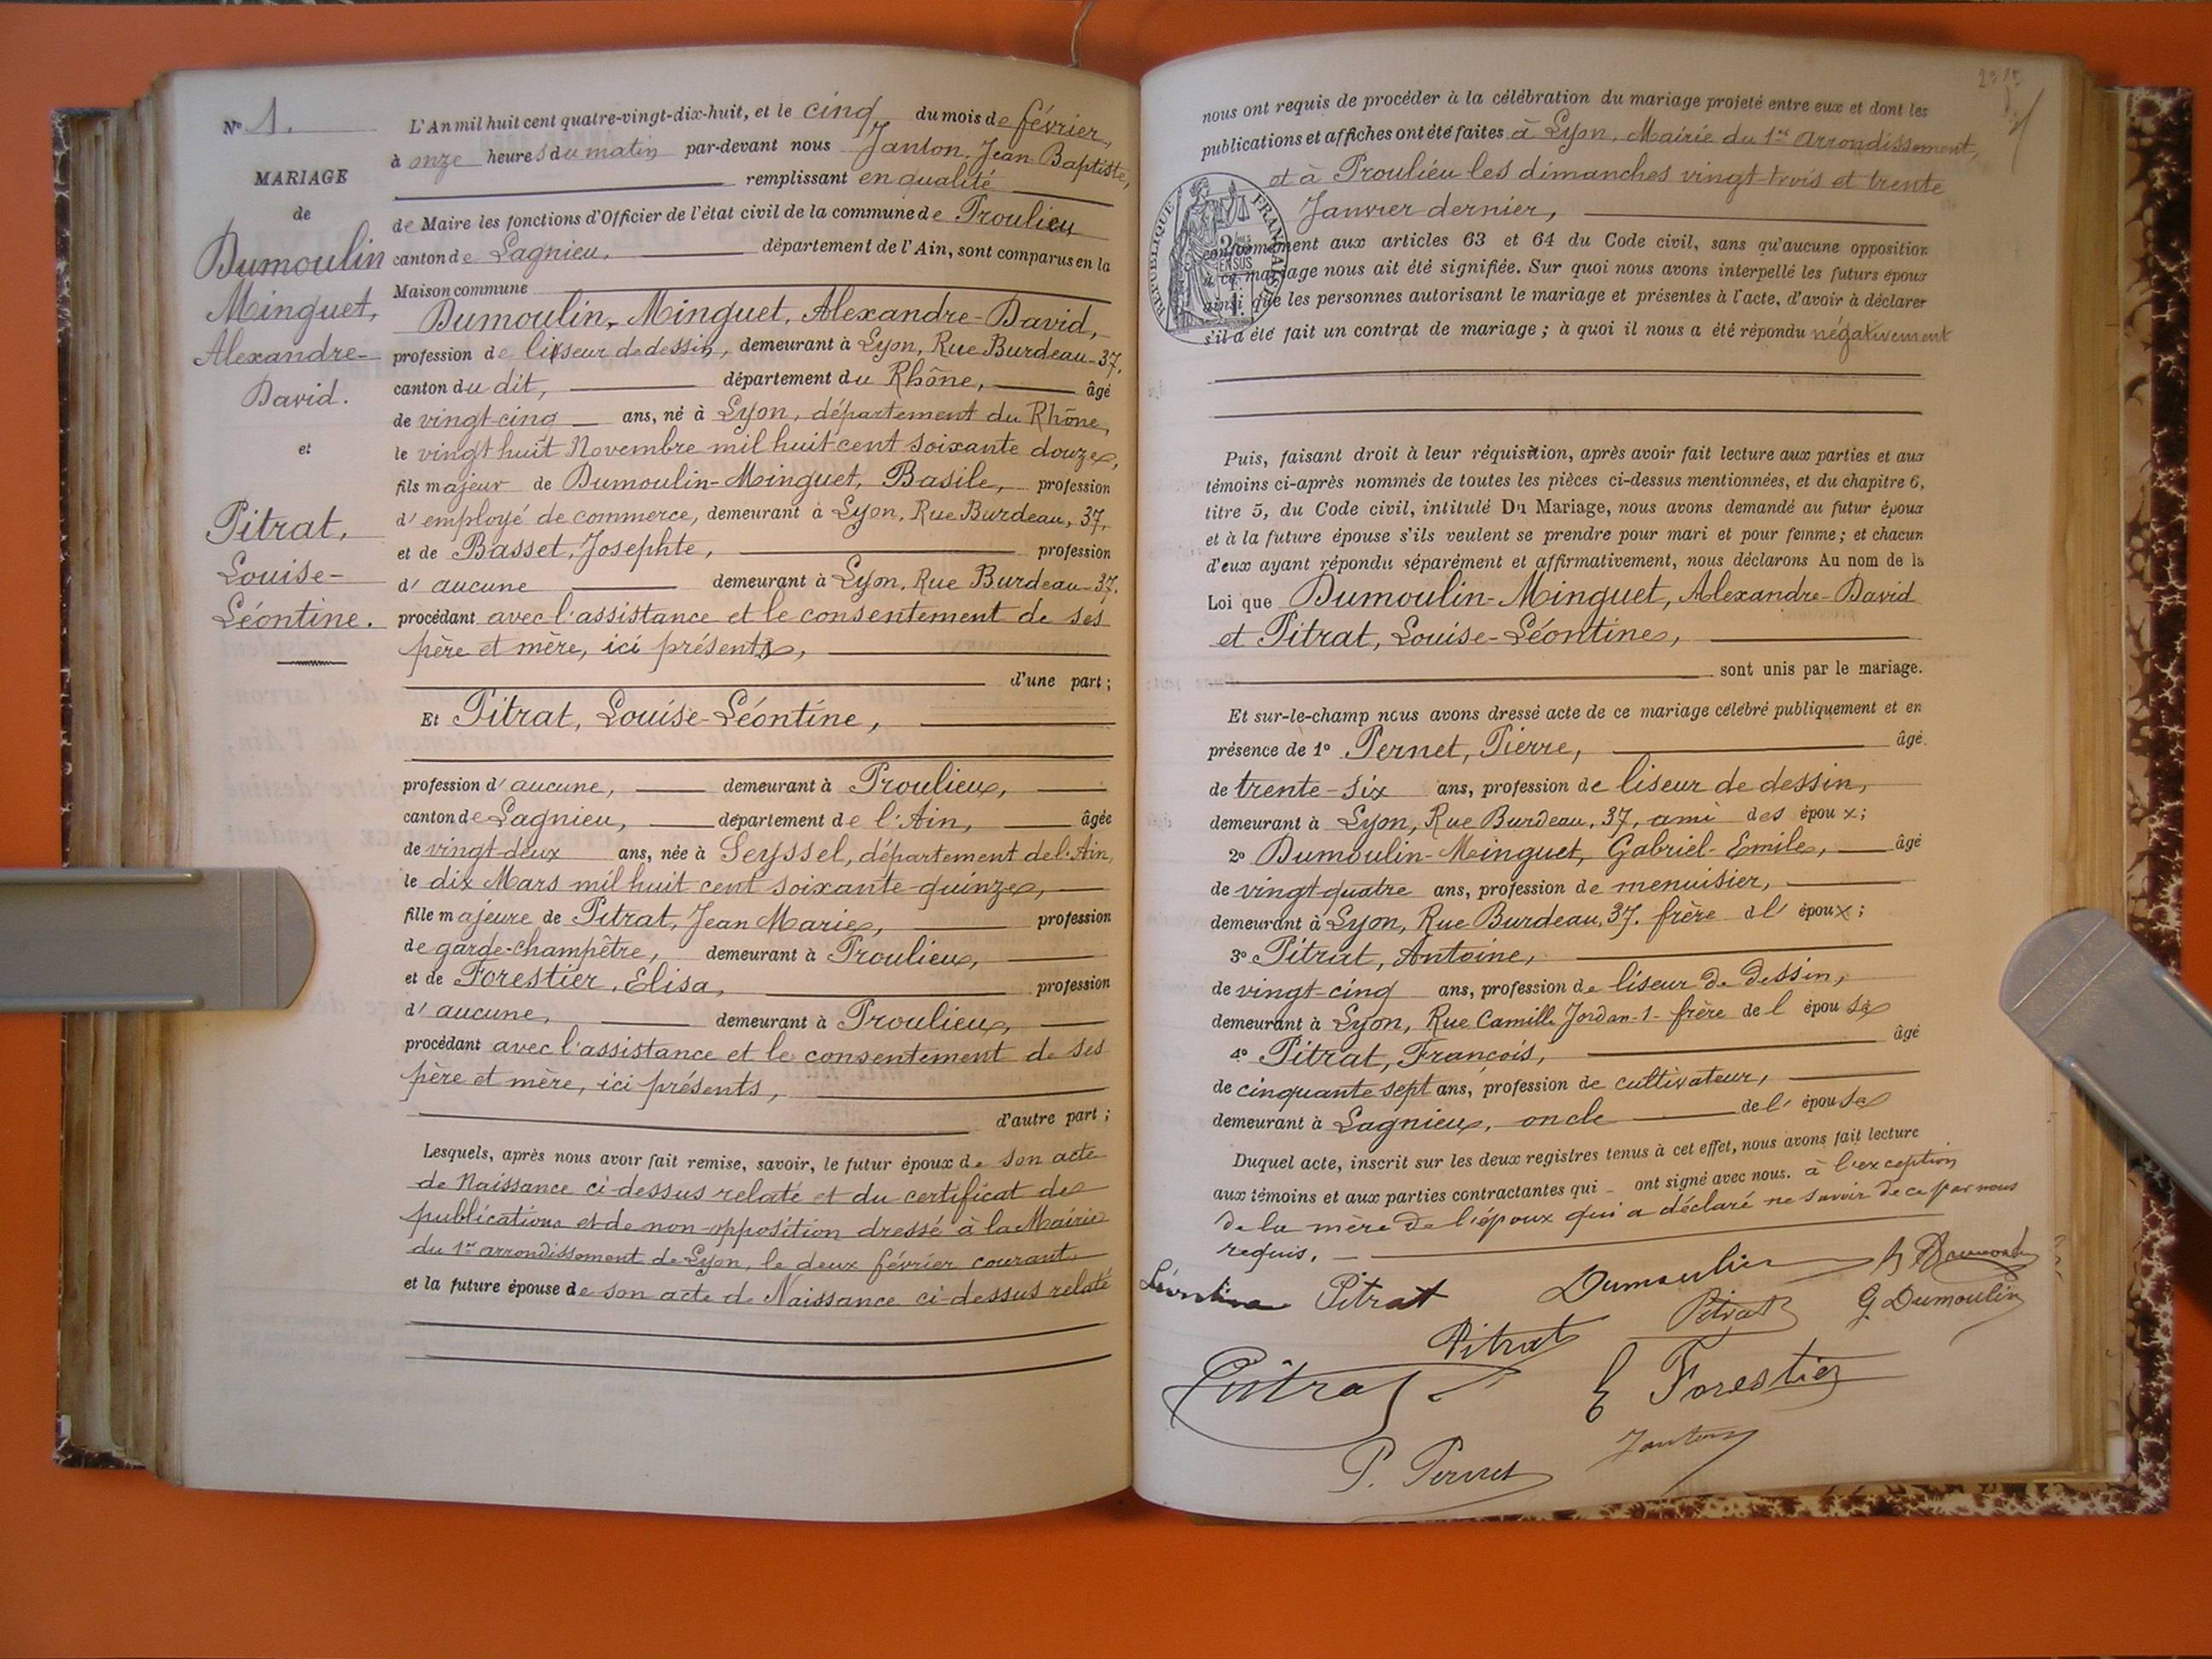 N° 1.
MARIAGE
de
Dumoulin
Minguet,
Alexandre-
David.
et
Pitrat,
Louise-
Léontine.
L'An mil huit cent quatre-vingt-dix-huit, et le cinq du mois de février,
à onze heures du matin par-devant nous Janton, Jean-Baptiste,
remplissant en qualité
de Maire les fonctions d'Officier de l'état civil de la commune de Proulieu
canton de Lagnieu, département de l'Ain, sont comparus en la
Maison commune
Dumoulin-Minguet, Alexandre-David,
profession de liseur de dessin, demeurant à Lyon, Rue Burdeau-37,
canton du dit, département du Rhône, âgé
de vingt-cinq ans, né à Lyon, département du Rhône,
le vingt huit Novembre mil huit cent soixante douze,
fils majeur de Dumoulin-Minguet, Basile, profession
d'employé de commerce, demeurant à Lyon, Rue Burdeau, 37,
et de Basset, Josephte, profession
d'aucune demeurant à Lyon, Rue Burdeau-37.
procédant avec l'assistance et le consentement de ses
père et mère, ici présents,
d'une part;
Et Pitrat, Louise-Léontine,
profession d'aucune, demeurant à Proulieu,
canton de Lagnieu, département de l'Ain, âgée
de vingt-deux ans, née à Seyssel, département de l'Ain,
le dix Mars mil huit cent soixante-quinze,
fille majeure de Pitrat, Jean Marie, profession
de garde-champêtre, demeurant à Proulieu,
et de Forestier, Elisa, profession
d'aucune, demeurant à Proulieu,
procédant avec l'assistance et le consentement de ses
père et mère, ici présents,
d'autre part;
Lesquels, après nous avoir fait remise, savoir, le futur époux de son acte
de Naissance ci-dessus relaté et du certificat de
publications et de non-opposition dressé à la Mairie
du 1er arrondissement de Lyon, le deux février courant
et la future épouse de son acte de Naissance ci-dessus relaté
nous ont requis de procéder à la célébration du mariage projeté entre eux et dont les
publications et affiches ont été faites à Lyon, Mairie du 1er Arrondissement,
et à Proulieu les dimanches vingt-trois et trente
Janvier dernier,
RÉPUBLIQUE FRANÇAISE
conformément aux articles 63 et 64 du Code civil, sans qu'aucune opposition
à ce mariage nous ait été signifiée. Sur quoi nous avons interpellé les futurs époux
ainsi que les personnes autorisant le mariage et présentes à l'acte, d'avoir à déclarer
s'il a été fait un contrat de mariage; à quoi il nous a été répondu négativement
Puis, faisant droit à leur réquisition, après avoir fait lecture aux parties et aux
témoins ci-après nommés de toutes les pièces ci-dessus mentionnées, et du chapitre 6,
titre 5, du Code civil, intitulé Du Mariage, nous avons demandé au futur époux
et à la future épouse s'ils veulent se prendre pour mari et pour femme; et chacun
d'eux ayant répondu séparément et affirmativement, nous déclarons Au nom de la
Loi que Dumoulin-Minguet, Alexandre-David
et Pitrat, Louise-Léontine,
sont unis par le mariage.
Et sur-le-champ nous avons dressé acte de ce mariage célébré publiquement et en
présence de 1° Pernet, Pierre, âgé
de trente-six ans, profession de liseur de dessin,
demeurant à Lyon, Rue Burdeau, 37, ami des époux;
2° Dumoulin-Minguet, Gabriel-Emile, âgé
de vingt-quatre ans, profession de menuisier,
demeurant à Lyon, Rue Burdeau, 37. frère de l'époux;
3° Pitrat, Antoine,
de vingt-cinq ans, profession de liseur de dessin,
demeurant à Lyon, Rue Camille Jordan-1- frère de l épouse
4° Pitrat, François, âgé
de cinquante sept ans, profession de cultivateur,
demeurant à Lagnieu, oncle de l'épouse
Duquel acte, inscrit sur les deux registres tenus à cet effet, nous avons fait lecture
aux témoins et aux parties contractantes qui ont signé avec nous. à l'exception
de la mère de l'époux qui a déclaré ne savoir de ce par nous
requis.
Léontine Pitrat Dumoulin
Pitrat G. Dumoulin
Pitrat
Pitrat E Forestier
Janton
P. Pernet